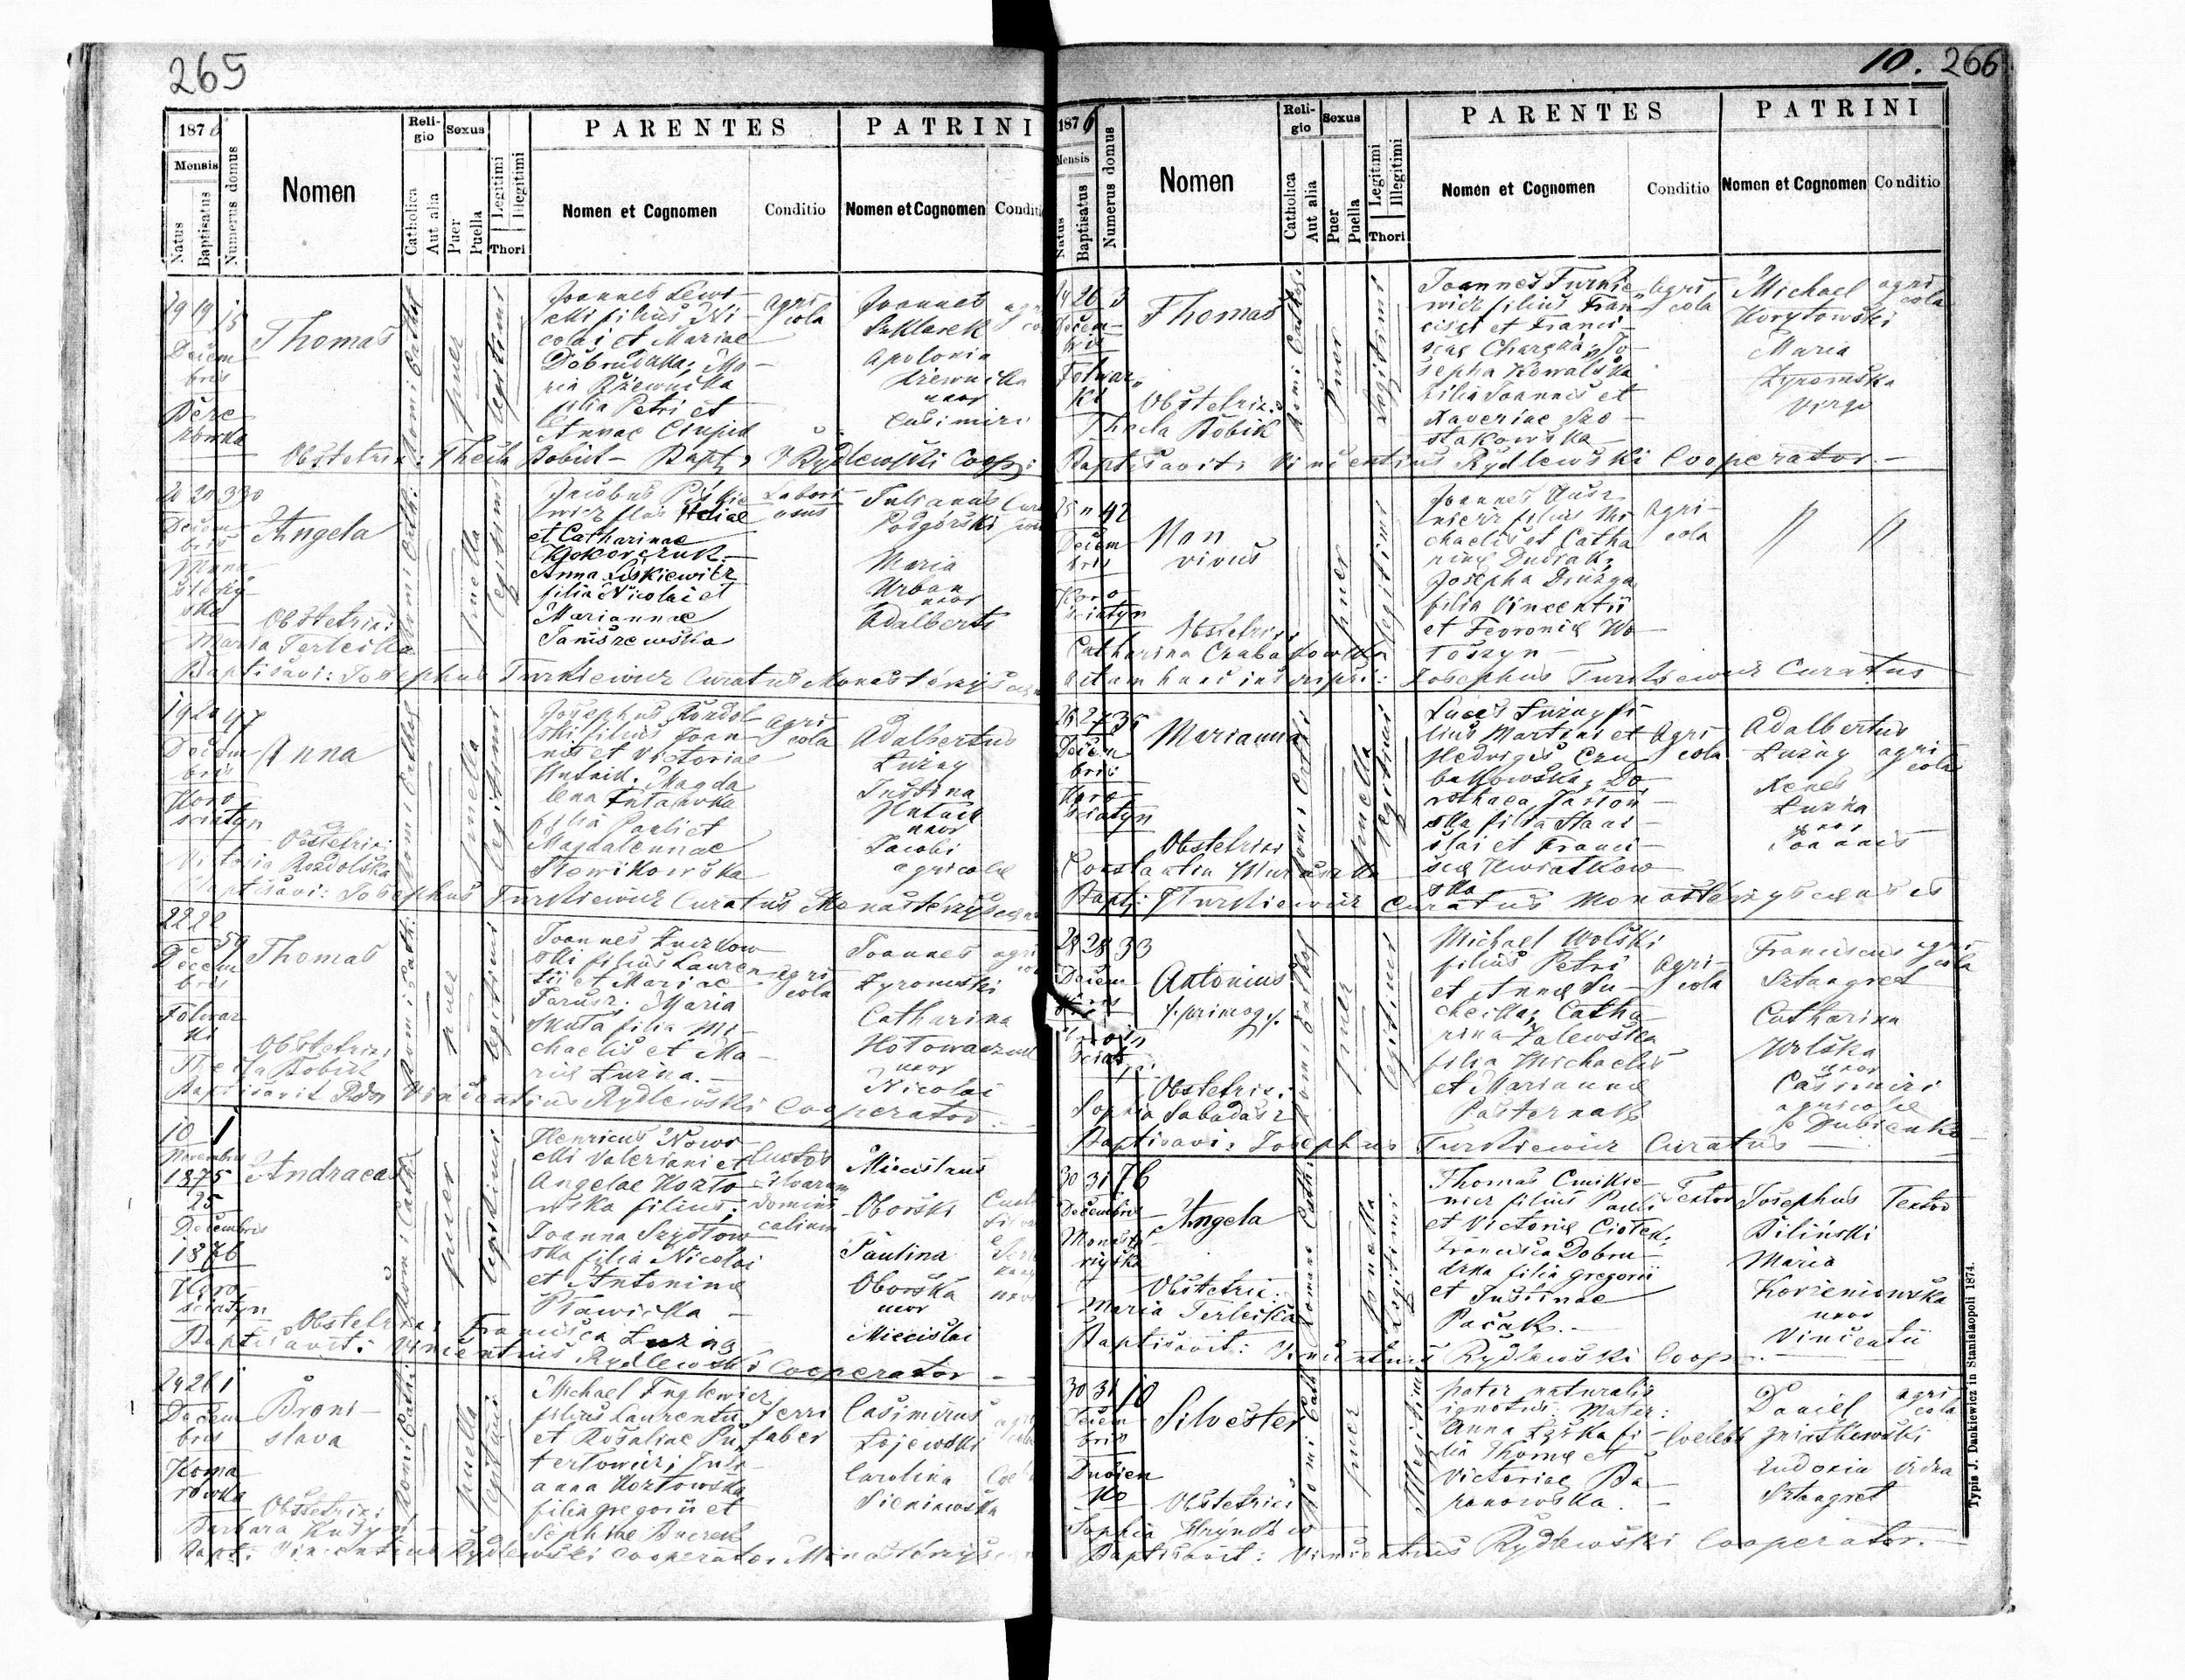 265
1876
Mensis
Natus
Baptisatus
Numerus domus
Nomen
Religio
Catholica
Aut alia
Sexus
Puer
Puella
Legitimi
Illegitimi
Thori
PARENTES
Nomen et Cognomen
Conditio
PATRINI
Nomen et Cognomen
Conditi
19 19 15
Decem
bris
Thomas
puer
legitimi
Joannes Lews-
cki filius Ni-
colai et Mariae
Dobrudzka; Ma-
ria Rżewnicka
filia Petri et
Annae
agri
cola
Joannes
Szklarek
Apolonia
Rżewnicka
uxor
Casimiri
Obstetrix: Thecla Bobik - Bapt: V Rydlewski Coop:
20 20 330
Decem
bris
Angela
puella
legitimi
Jacobus Piskie
wicz filius Heliae
et Catharinae
Anna Liskiewicz
filia Nicolai et
Mariannae
Taniszewska
Labori
osus
Julianus
Podgórski
Maria
Urban
uxor
Adalberti
Obstetrix:
Maria Terlecka
Baptisavi: Josephus Turkiewicz Curatus
19 20 47
Decem
bris
Koro
sciatyn
Anna
puella
legitimi
Josephus Rozdol
ski filius Joan-
nis et Victoriae
Hutnik. Magda
lena
filia Pauli et
Magdalennae
Słowikowska
agri
cola
Adalbertus
Luzny
Justina
Hutnik
uxor
Jacobi
agricolae
Obstetrix:
Rozdolska
Baptisavi: Josephus Turkiewicz Curatus
22 22
59
Decem
bris
Folwar
ki
Thomas
puer
legitimi
Joannes Zurkow
ski filius Lauren
tii et Mariae
Jarusz; Maria
Skuta filia Mi-
chaelis et Ma-
riae Luzna.
agri
cola
Joannes
Zyromski
Catharina
uxor
Nicolai
Obstetrix:
Thecla Bobik
Baptisavit Vincentius Rydlewski Cooperator
10 1
Novembris
1875
25
Decembris
1876
Koro
sciatyn
Andraeas
puer
legitimi
Henricus Nows-
cki Valeriani et
Angelae Kozło-
wska filius;
Joanna Szydłow
ska filia Nicolai
et Antoninae
Sławicka
Custos
silvarum
domini
calium
Miecislaus
Oborski
Paulina
Oborska
uxor
Miecislai
Obstetrix: Francisca Luzna
Baptisavit: Vincentius Rydlewski Cooperator
24 26 1
Decem
bris
Koma
rowka
Broni-
slava
puella
legitimi
Michael
filius Laurentii
et Rosaliae Pu
tertowicz; Juli
anna Kozłowska
filia Gregorii et
Josephae
ferri
faber
Casimirus
Łojewski
Carolina
Sieniawska
Obstetrix:
Barbara
Bapt: Vincentius Rydlewski Cooperator
10. 266
1876
Mensis
Natus
Baptisatus
Numerus domus
Nomen
Religio
Catholica
Aut alia
Sexus
Puer
Puella
Legitimi
Illegitimi
Thori
PARENTES
Nomen et Cognomen
Conditio
PATRINI
Nomen et Cognomen
Conditio
26 3
Decem-
bris
Folwar
ki
Thomas
puer
Legitimi
Joannes Turkie
wicz filius Fran-
cisci et Franci-
scae; Jo-
sepha Kowalska
filia Joannis et
Xaveriae Szo-
stakowska
agri
cola
Michael
Korytowski
Maria
Zyromska
Virgo
agri
cola
Obstetrix:
Thecla Bobik
Baptisavit: Vincentius Rydlewski Cooperator. -
25 " 42
Decem
bris
Koro
sciatyn
Non
vivus
puer
legitimi
Joannes
filius Mi
chaelis et Catha
rinae Dudrak;
Josepha Druzga
filia Vincentii
et Fevroniae Wo-
łoszyn -
Agri-
cola
"
"
Obstetrix:
Catharina
actum hunc inscripsi: Josephus Turkiewicz Curatus
26 27 35
Decem
bris
Koro
sciatyn
Marianna
puella
legitimi
Lucas Luzny fi
lius Martini et
Hedvigis Czu
bakowska; Do
rothaea
filia Stani-
slai et Franci-
scae Kwiatkow
ska
Agri
cola
Adalbertus
Luzny
agri
cola
Luzna
uxor
Joannis
Obstetrix
Constantia
Bapt: J Turkiewicz Curatus Monasterzyscensis
28 28 33
Decem
bris
Antonius
/:primog:/
puer
legitimi
Michael Wolski
filius Petri
et Annae Su-
checka; Catha-
rina Zalewska
filia Michaelis
et Mariannae
Pasternak
agri-
cola
Franciscus
Sztangret
agri
cola
Catharina
Wolska
uxor
Casimiri
agricolae
Obstetrix:
Sophia Sabadasz
Baptisavi: Josephus Turkiewicz Curatus
30 31 76
Decembris
Monaste
rzyska
Angela
puella
legitimi
Thomas Cmikie-
wicz filius Pauli
et Victoriae Ciołek;
Francisca Dobru-
dzka filia Gregorii
et Justinae
Pacak. -
Textor
Josephus
Biliński
Maria
Korzeniowska
uxor
Vincentii
Textor
Obstetrix:
Maria Terlecka
Baptisavit: Vincentius Rydlewski Coop.
30 31 10
Decem
bris
Dubien
ko
Silvester
puer
Illegitimi
pater naturalis
ignotus Mater:
Anna Łyska fi-
lia Thomae et
Victoriae Ba-
ranowska. -
Coelebs
Daniel
agri
cola
Eudoxia
Sztangret
vidua
Obstetrix
Sophia
Baptisavit: Vincentius Rydlewski Cooperator.
Typis J. Dankiewicz in Stanislaopoli 1874.